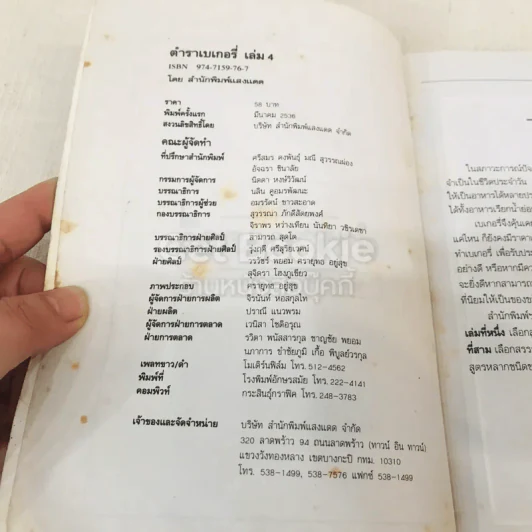 ตำราเบเกอรี่ เล่ม 4
ISBN 974-7159-76-7
โดย สำนักพิมพ์แสงแดด
ราคา 58 บาท
พิมพ์ครั้งแรก มีนาคม 2536
สงวนลิขสิทธิ์โดย บริษัท สำนักพิมพ์แสงแดด จำกัด
คณะผู้จัดทำ
ที่ปรึกษาสำนักพิมพ์ ศรีสมร คงพันธุ์ มณี สุวรรณผ่อง
อัจฉรา ชินาลัย
กรรมการผู้จัดการ นิดดา หงษ์วิวัฒน์
บรรณาธิการ นลิน คูอมรพัฒนะ
บรรณาธิการผู้ช่วย อมรรัตน์ ขาวสะอาด
กองบรรณาธิการ สุวรรณา ภักดีสัตยพงศ์
จิราพร หว่างเทียน นันทิยา
บรรณาธิการฝ่ายศิลป์ สามารถ สุดโต
รองบรรณาธิการฝ่ายศิลป์ รุ่งฤดี ศรีสุวัยเวคน์
ฝ่ายศิลป์ วรวัชร์ พยอม ครายุทธ อยู่สุข
สุจิตรา โฮงภูเขียว
ภาพประกอบ ครายุทธ อยู่สุข
ผู้จัดการฝ่ายการผลิต จิรนันท์ หอสกุลไท
ฝ่ายผลิต ปราณี แนวพรม
ผู้จัดการฝ่ายการตลาด เวนิสา โชติอรุณ
ฝ่ายการตลาด รวิดา พนัสสารกุล ชาญชัย พยอม
นภาการ ชำชัยภูมิ เกื้อ พิบูลย์วรกุล
เพลทขาว/ดำ โมเดิร์นฟิล์ม โทร. 512-4562
พิมพ์ที่ โรงพิมพ์อักษรสมัย โทร. 222-4141
คอมพิวท์ กระสินธุ์กราฟิค โทร. 248-3783
เจ้าของและจัดจำหน่าย บริษัท สำนักพิมพ์แสงแดด จำกัด
320 ลาดพร้าว 94 ถนนลาดพร้าว (ทาวน์ อิน ทาวน์)
แขวงวังทองหลาง เขตบางกะปิ กทม. 10310
โทร. 538-1499, 538-7576 แฟกซ์ 538-1499
ในสภาวะการณ์ปัจ
จำเป็นในชีวิตประจำวัน
ให้อาหารได้หลายประ
ได้ทั้งอาหารเรียกน้ำย่อ
เบเกอรีจึงคุ้นเค
แค่ไหน ก็ยังคงมีราคา
ทำเบเกอรี เพื่อรับประ
อย่างดี หรือหากมีควา
จะยิ่งดีหากสามารถ
ที่นิยมให้เป็นของข
สำนักพิมพ์
เล่มที่หนึ่ง เลือก
ที่สาม เลือกสรร
สูตรหลากชนิด